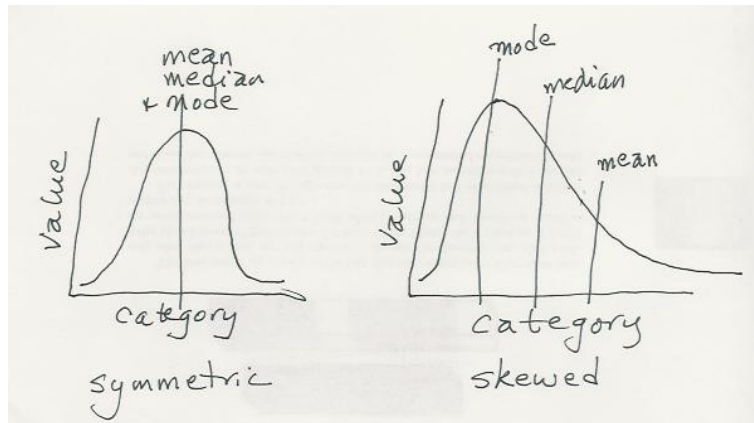 mean
median
+ mode
Value
category
symmetric
mode
median
mean
Value
category
skewed